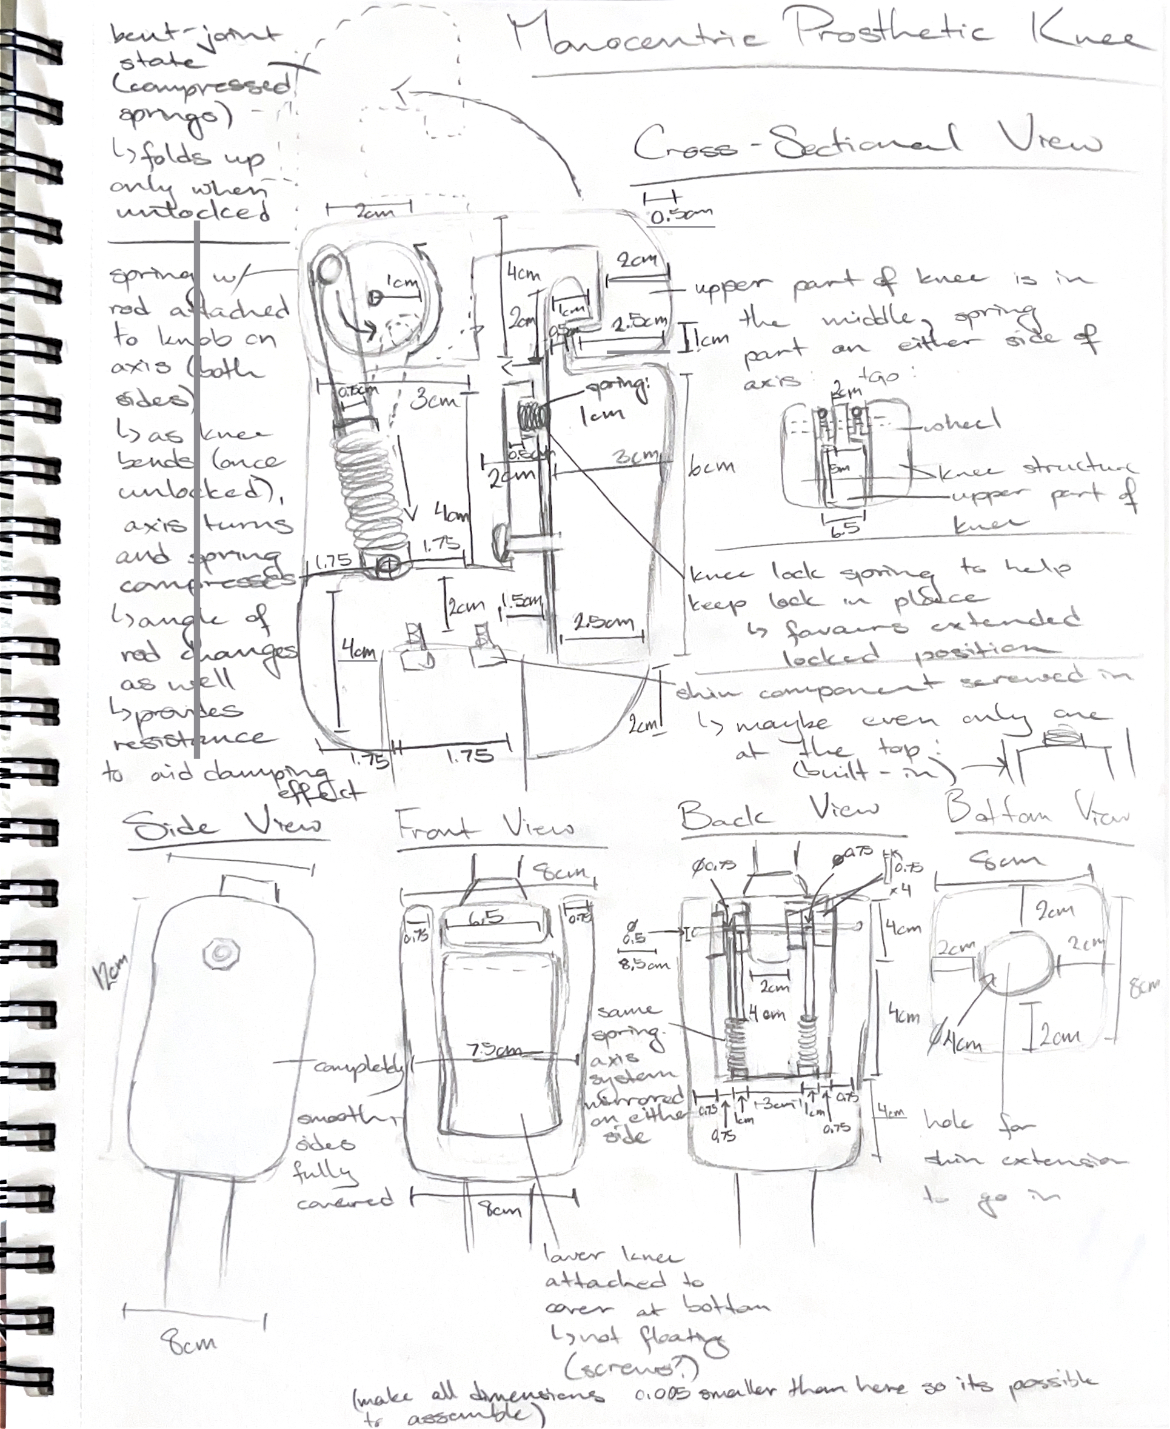 Monocentric Prosthetic Knee
Cross-Sectional View
bent-joint
state
(compressed
springs)
↳ folds up
only when
unlocked
spring w/
rod attached
to knob on
axis (both
sides)
↳ as knee
bends (once
unlocked),
axis turns
and spring
compresses
↳ angle of
rod changes
as well
↳ provides
resistance
to aid damping
effect
2cm
0.5cm
1cm
4cm
2cm
2cm
1cm
0.5cm
2.5cm
1cm
0.75cm
3cm
spring:
1cm
0.5cm
2cm
3cm
6cm
4cm
1.75
1.75
2cm
1.5cm
2.5cm
4cm
2cm
1.75
1.75
upper part of knee is in
the middle, spring
part on either side of
axis too:
2cm
5m
6.5
wheel
knee structure
upper part of
knee
knee lock spring to help
keep lock in place
↳ favours extended
locked position
shin component screwed in
↳ maybe even only one
at the top:
(built-in)
Side View
12cm
8cm
completely
smooth,
sides
fully
covered
Front View
8cm
6.5
0.75
0.75
7.5cm
8cm
lower knee
attached to
cover at bottom
↳ not floating
(screws?)
Back View
∅0.75
∅0.75
0.75
×4
∅
0.5
8.5cm
4cm
2cm
4cm
4cm
same
spring
axis
system
mirrored
on either
side
0.75
0.75
1cm
3cm
1cm
0.75
0.75
4cm
Bottom View
8cm
2cm
2cm
2cm
8cm
∅4cm
2cm
hole for
shin extension
to go in
(make all dimensions 0.005 smaller than here so its possible
to assemble)